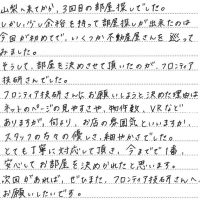 山梨へ来てから、3回目の部屋探しでした。
しかし、少し余裕を持って部屋探しが出来たのは
今回が初めてで、いくつか不動産屋さんを巡って
みました。
そうして、部屋を決めさせて頂いたのが、フロンティア
技研さんでした。
フロンティア技研さんにお願いしようと決めた理由は
ネットのページの見やすさや、物件数、VRなど
ありますが、何より、お店の雰囲気といいますか、
スタッフの方々の優しさ、細やかさでした。
とても丁寧に対応して頂き、今までで1番、
安心してお部屋を決めれたと思います。
次回があれば、ぜひまた、フロンティア技研さんへ
お願いしたいです。